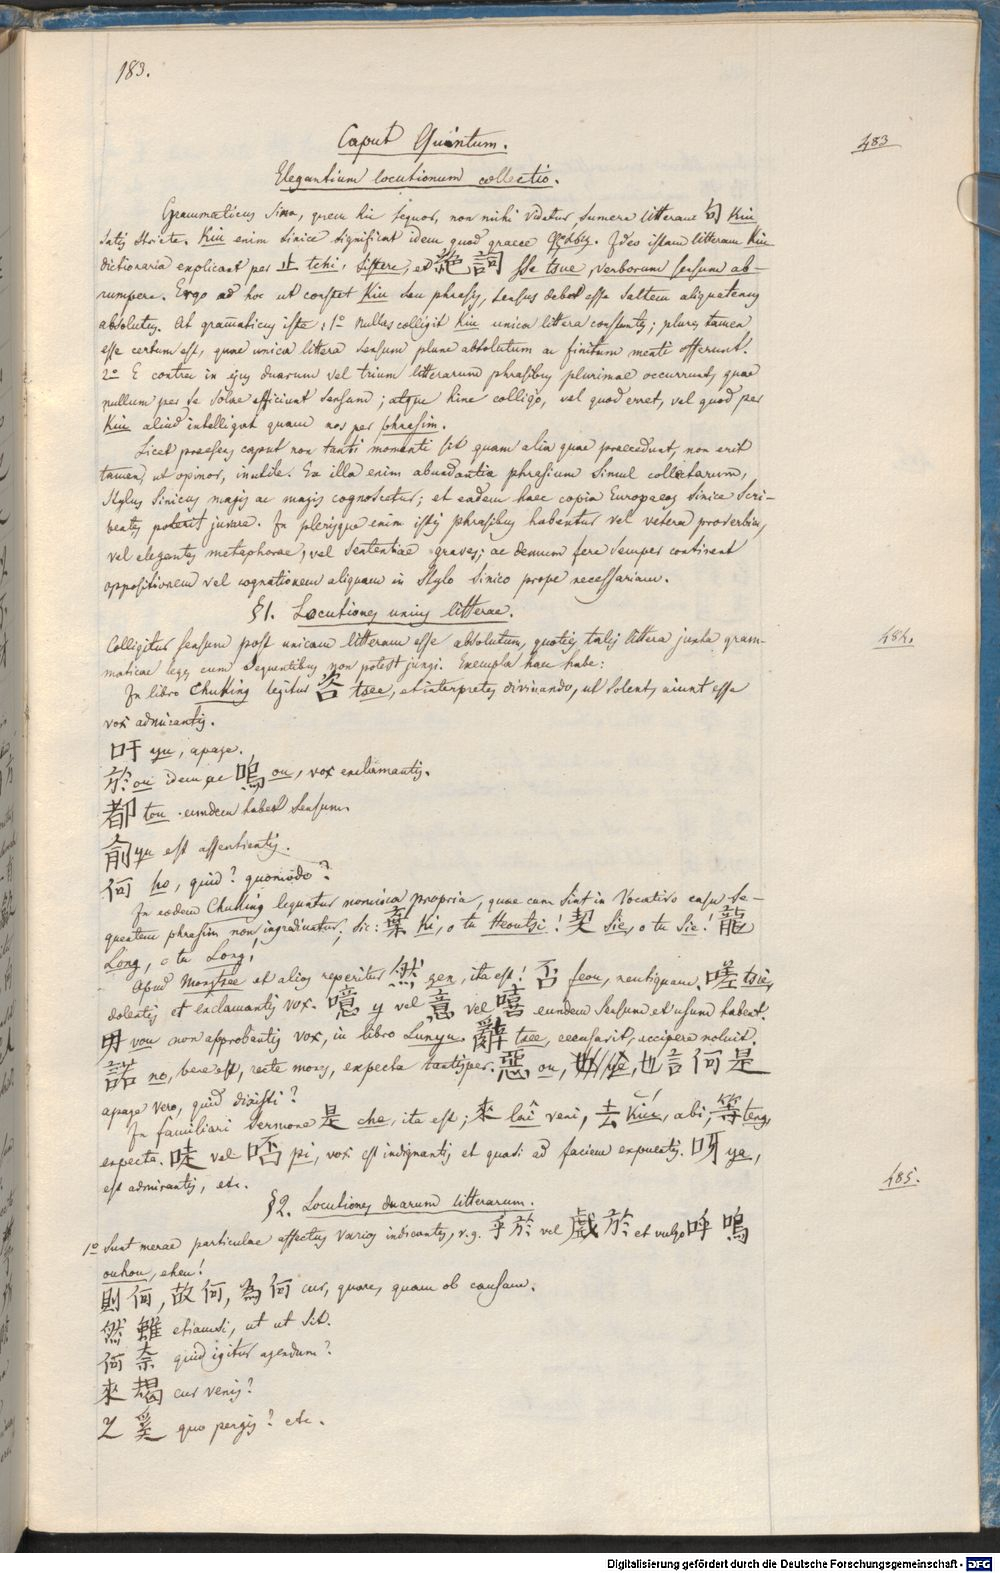 183.
Caput Quintum.
483
Elegantium locutionum collectio.
Grammaticus Sina, quem hic sequor, non mihi videtur sumere litteram 句 Kiu
satis stricte. Kiu enim sinice significat idem quod graece φράσις. Ideo istam litteram Kiu
dictionaria explicant per 止 tchi, sistere, et 絕詞 tsue, verborum sensum ab-
rumpere. Ergo ad hoc ut constet Kiu seu phrasis, sensus debet esse saltem aliquatenus
absolutus. At gram̄aticus iste: 1º nullas colligit Kiu unica littera constantes; plures tamen
esse certum est, quae unica littera sensum plane absolutum ac finitum menti offerunt.
2º E contra in ejus duarum vel trium litterarum phrasibus plurimae occurrunt, quae
nullum per se solae efficiunt sensum; atque hinc colligo, vel quod erret, vel quod per
Kiu aliud intelligat quam nos per phrasim.
Licet praesens caput non tanti momenti sit quam alia quae praecedunt, non erit
tamen, ut opinor, inutile. Ex illa enim abundantia phrasium simul collectarum,
stylus sinicus magis ac magis cognoscetur; et eadem haec copia Europaeos sinice scri-
bentes poterit juvare. In plerisque enim istis phrasibus habentur vel vetera proverbia,
vel elegantes metaphorae, vel sententiae graves; ac demum fere semper continent
oppositionem vel cognationem aliquam in stylo sinico prope necessariam.
§1. Locutiones unius litterae.
484.
Colligitur sensum post unicam litteram esse absolutum, quoties talis littera juxta gram-
maticae leges cum sequentibus non potest jungi. Exempla haec habe:
In libro Chuking legitur 咨 tsee, et interpretes divinando, ut solent, aiunt esse
vox admirantis.
吁 yu, apage.
於 ou idem ac 嗚 ou, vox exclamantis.
都 tou eumdem habet sensum.
俞 yu est assentientis.
何 ho, quid? quomodo?
In eodem Chuking leguntur nomina propria, quae cum sint in vocativo casu se-
quentem phrasim non ingrediuntur; sic: 棄 Ki, o tu Heoutsi! 契 Sie, o tu Sie! 龍
Long, o tu Long!
Apud Mengtsee et alios reperitur 然 gen, ita est! 否 feou, neutiquam. 嗟 tsie,
dolentis et exclamantis vox. 噫 y vel 意 vel 嘻 eumdem sensum et usum habent.
毋 vou non approbantis vox, in libro Lunyu. 辭 tsee, recusavit, accipere noluit.
諾 no, bene est, recte mones, expecta tantisper. 惡 ou, 也 言 何 是
apage vero, quid dixisti?
In familiari sermone 是 che, ita est; 來 laî veni, 去 Kiu, abi, 等 teng,
expecta. 呸 vel 㕻 pi, vox est indignantis et quasi ad faciem expuentis. 呀 ya,
est admirantis, etc.
§2. Locutiones duarum litterarum.
485.
1º Sunt merae particulae affectus varios indicantes, v.g. 乎於 vel 戲於 et vulgo 呼嗚
ouhou, eheu!
則何, 故何, 為何 cur, quare, quam ob causam.
然雖 etiamsi, ut ut sit.
何奈 quid igitur agendum?
來曷 cur venis?
之奚 quo pergis? etc.
Digitalisierung gefördert durch die Deutsche Forschungsgemeinschaft - DFG